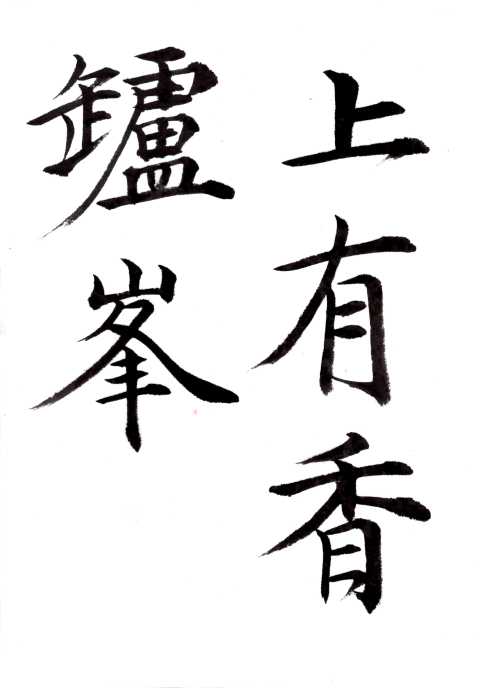 上有香
罏峯